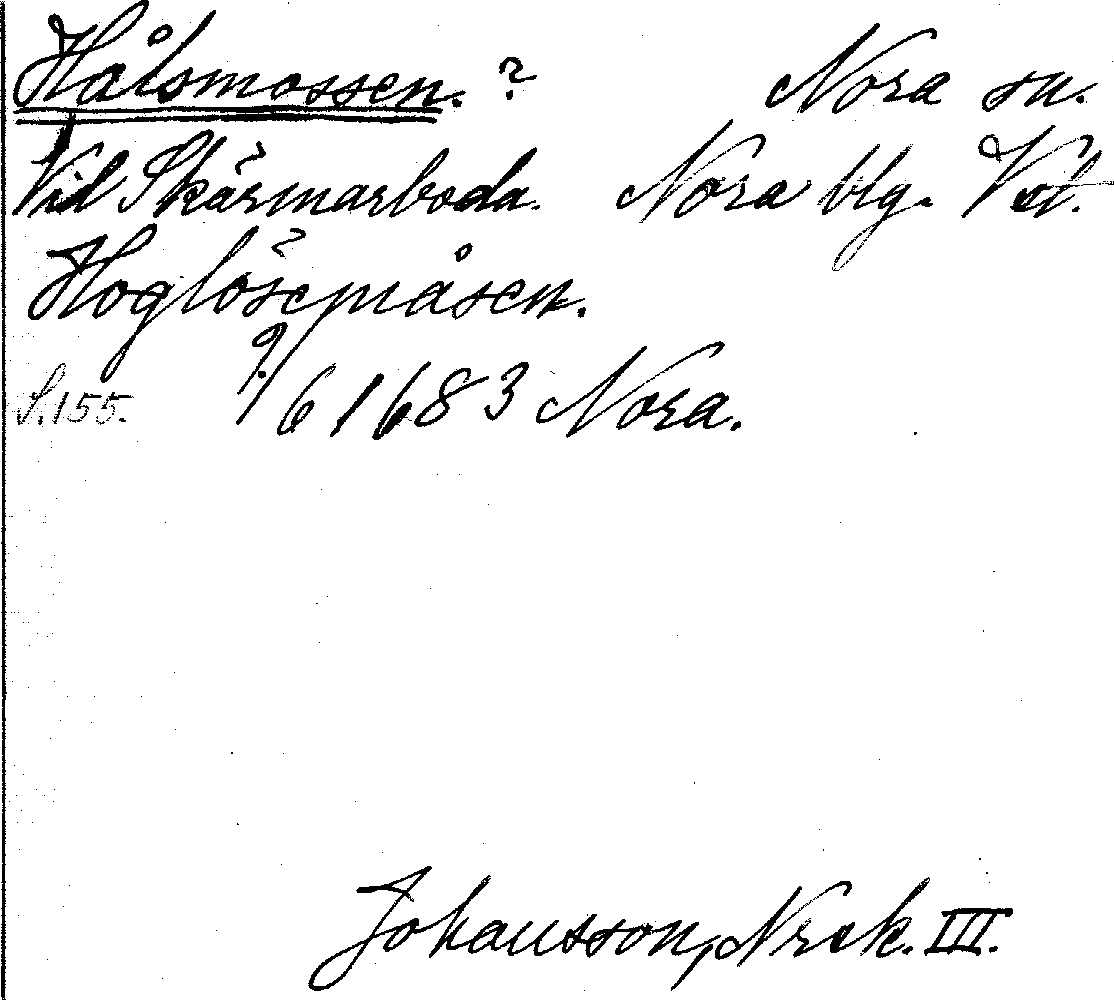 Hålsmossen. ? Nora sn.
Vid Skärmarboda. Nora blg. Vstl.
Höglösepiåsen.
S. 155. 9/6 1683 Nora.
Johansson, Nrck. III.